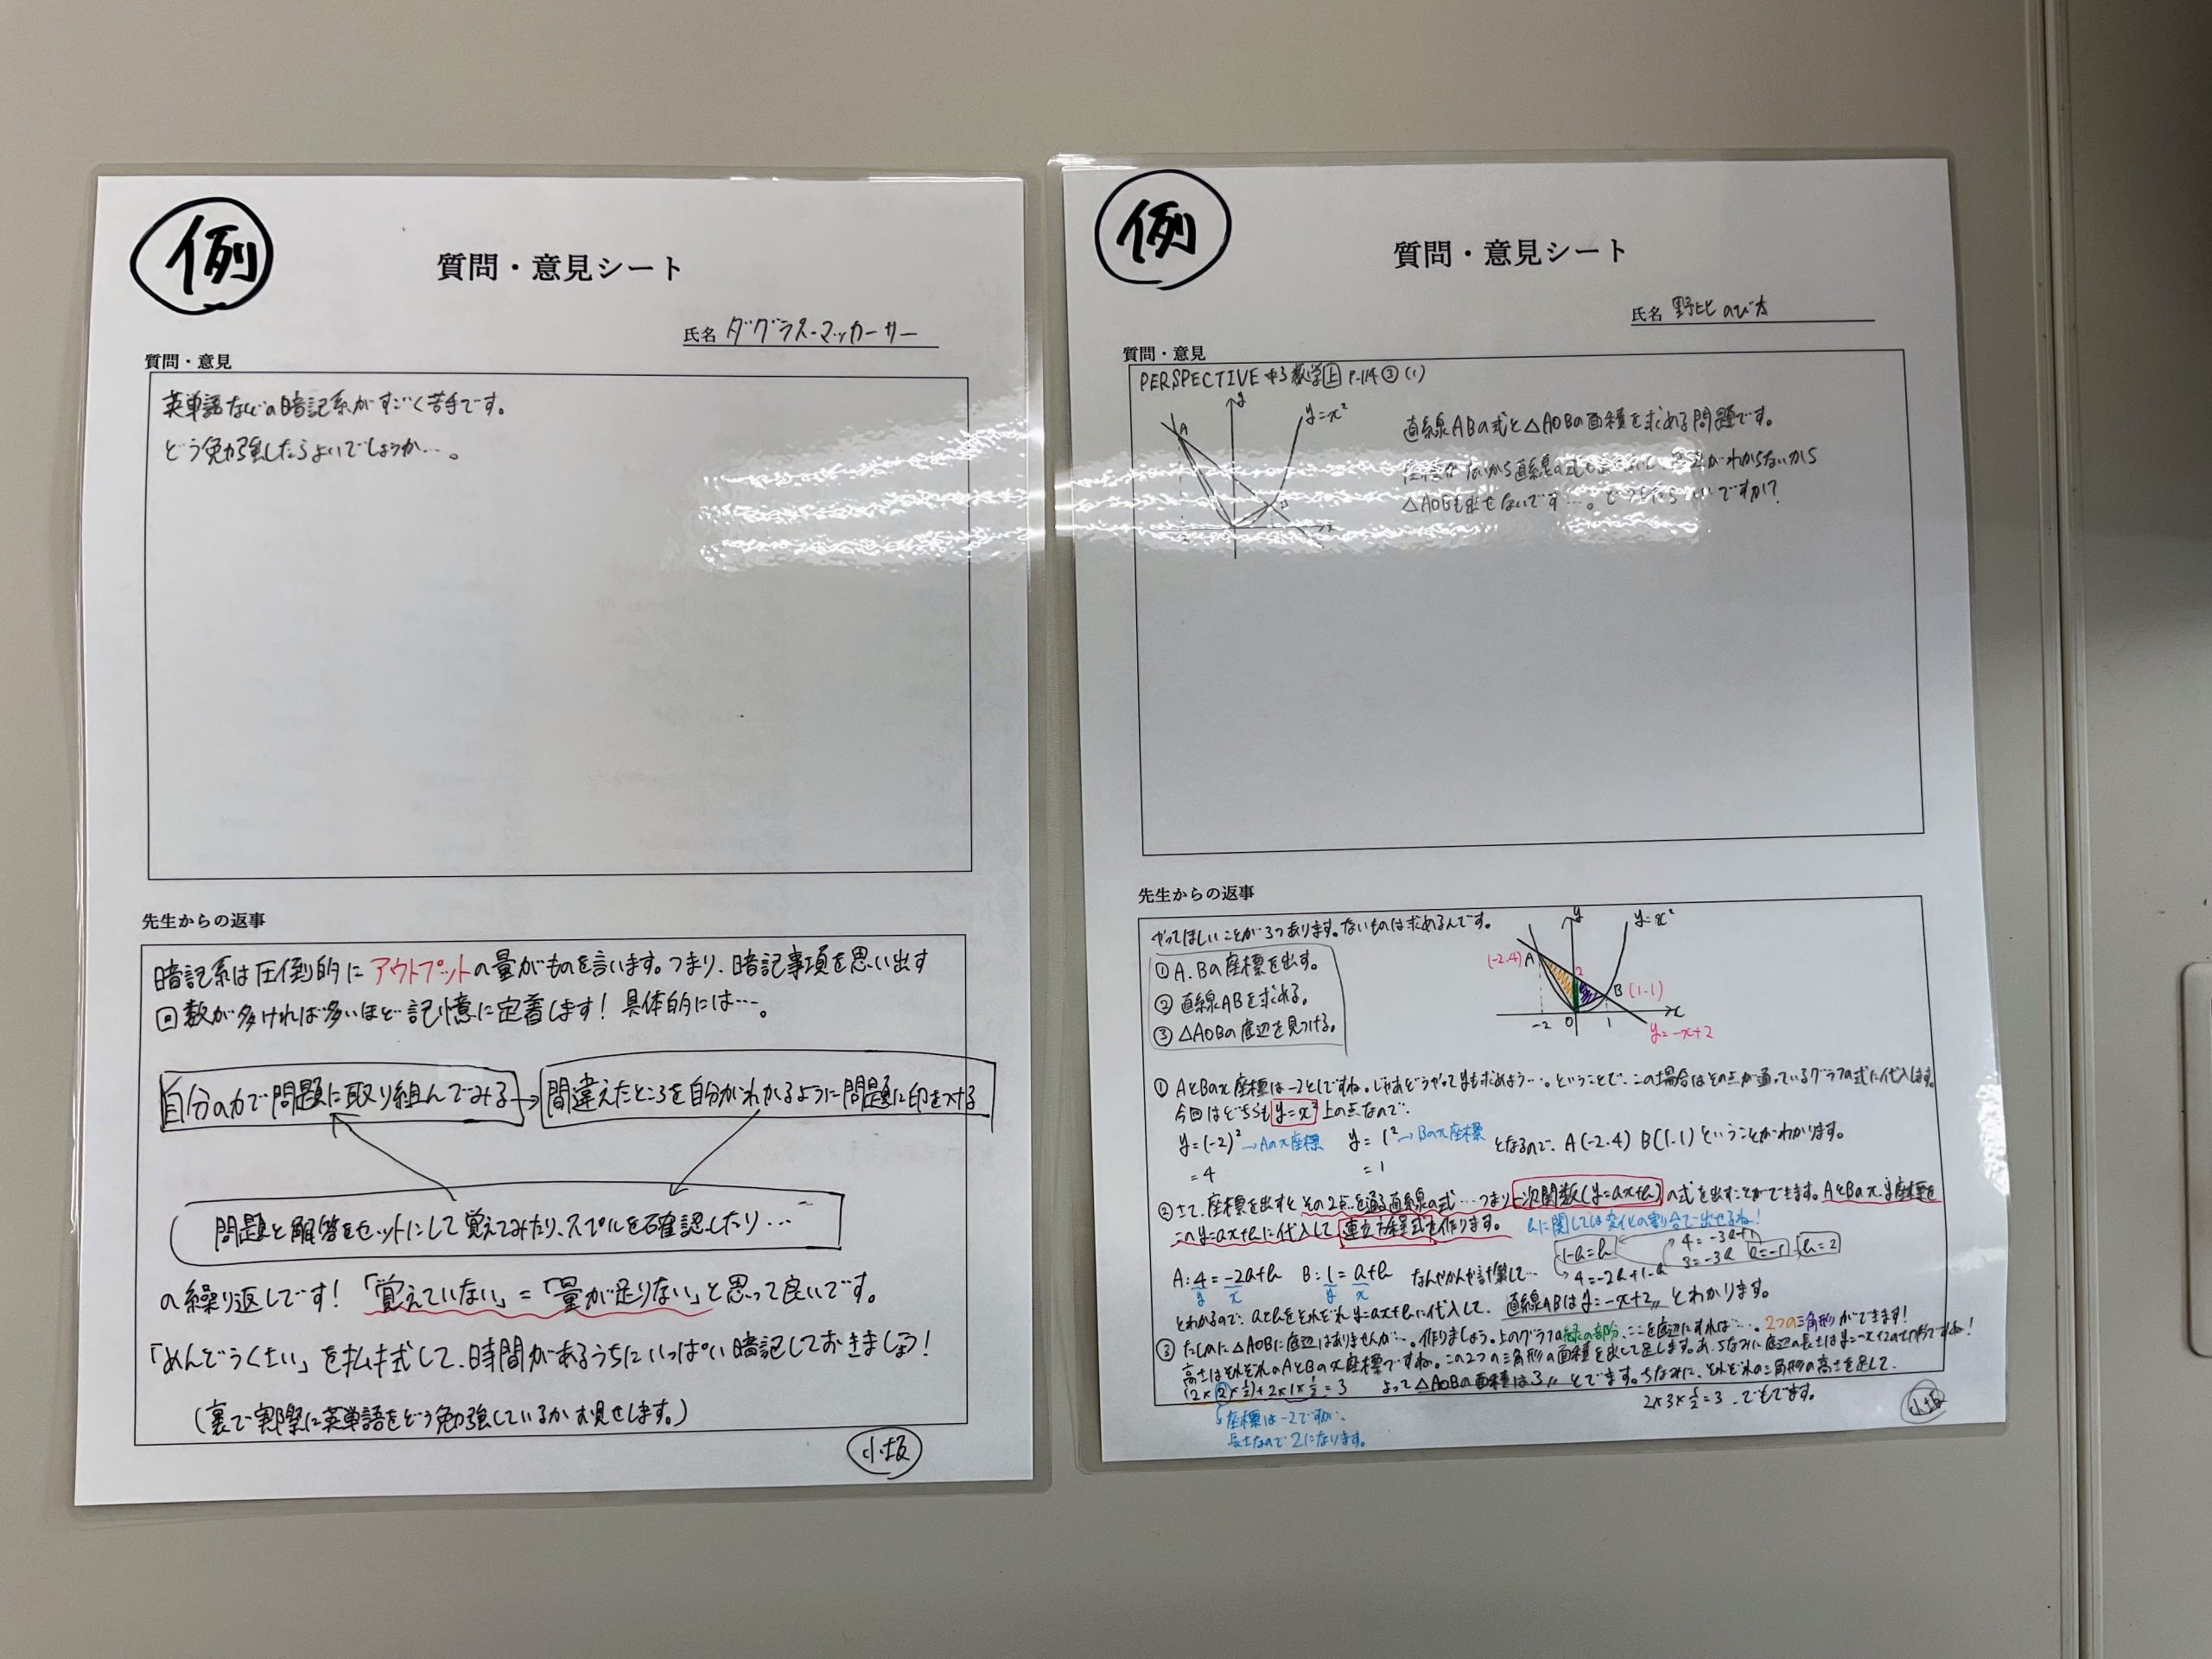 例
質問・意見シート
氏名 ダグラス・マッカーサー
質問・意見
英単語などの暗記系がすごく苦手です。
どう勉強したらよいでしょうか…。
先生からの返事
暗記系は圧倒的にアウトプットの量がものを言います。つまり、暗記事項を思い出す
回数が多ければ多いほど記憶に定着します！具体的には…。
自分の力で問題に取り組んでみる→間違えたところを自分がわかるように問題に印をつける
問題と解答をセットにして覚えてみたり、スペルを確認したり…
の繰り返しです！「覚えていない」=「量が足りない」と思って良いです。
「めんどうくさい」を払拭して、時間があるうちにいっぱい暗記しておきましょう！
(裏で実際に英単語をどう勉強しているかお見せします。)
小坂
例
質問・意見シート
氏名 野比のび太
質問・意見
PERSPECTIVE 中3数学上 P.114 ③ (1)
y
y=x²
A
B
x
直線ABの式と△AOBの面積を求める問題です。
ないから直線の式も がわからないから
△AOBも出せないです…。どうしたらいいですか？
先生からの返事
やってほしいことが3つあります。ないものは求めるんです。
① A、Bの座標を出す。
② 直線ABを求める。
③ △AOBの底辺を見つける。
y
y=x²
(-2.4) A
2
B (1.1)
x
-2 0 1
y=-x+2
① AとBのx座標は-2と1ですね。じゃあどうやってyも求めよう…。ということで、この場合はその点が通っているグラフの式に代入します。
今回はどちらもy=x²上の点なので、
y=(-2)²→Aのx座標 y=1²→Bのx座標 となるので、A(-2.4) B(1.1)ということがわかります。
=4 =1
② さて、座標を出すとその2点を通る直線の式…つまり一次関数(y=ax+b)の式を出すことができます。AとBのx、y座標を
このy=ax+bに代入して連立方程式を作ります。 aに関しては変化の割合で出せるね！
1-a=b 4=-3a+1
4=-2a+1-a 3=-3a a=-1 b=2
A:4=-2a+b B:1=a+b なんやかんや計算して…
y x y x
とわかるので、aとbをそれぞれy=ax+bに代入して、直線ABはy=-x+2〃とわかります。
③ たしかに△AOBに底辺はありませんが…。作りましょう。上のグラフの緑の部分、ここを底辺にすれば…。2つの三角形ができます！
高さはそれぞれのAとBのx座標ですね。この2つの三角形の面積を出して足します。あ、ちなみに底辺の長さはy=-x+2の切片ですね！
(2×2×½)+2×1×½=3 よって△AOBの面積は3〃とでます。ちなみに、それぞれの三角形の高さを足して、
2×3×½=3、でもでます。
座標は-2ですが、
長さなので2になります。
小坂